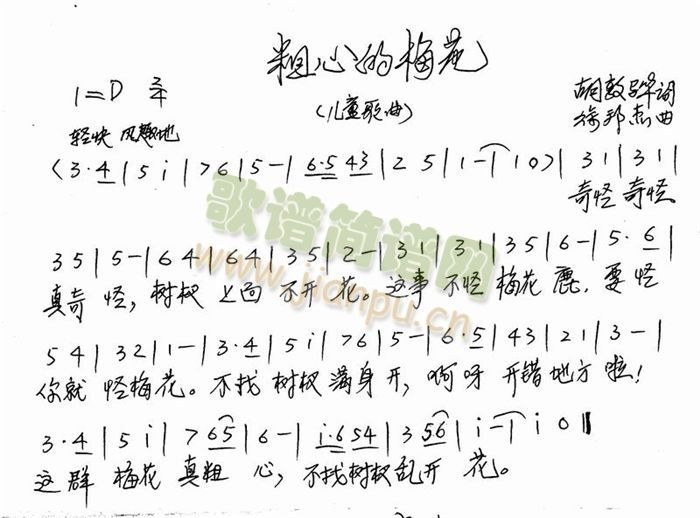 粗心的梅花
1=D 2/4
(儿童歌曲)
词
徐邦杰曲
轻快 风趣地
(3·4|5 i|7 6|5 -|6·5 43|2 5|1 -|1 0)|3 1|3 1|
奇怪 奇怪
3 5|5 -|6 4|6 4|3 5|2 -|3 1|3 1|3 5|6 -|5· 6|
真奇怪,树杈上面不开花。这事不怪梅花鹿,要怪
5 4|3 2|1 -|3·4|5 i|7 6|5 -|6·5|4 3|2 1|3 -|
你就怪梅花。不找树杈满身开,啊呀开错地方啦!
3·4|5 i|7 65|6 -|i·6 54|3 56|i -|i 0‖
这群梅花真粗心,不找树杈乱开花。
歌谱简谱网
www.jianpu.cn